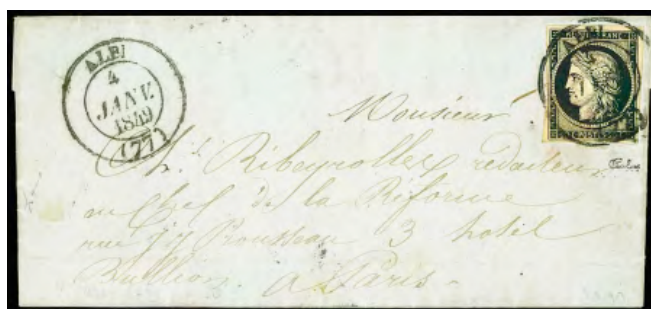 ALBI
4
JANV.
1849
(77)
REPUB. FRANC.
ALBI
POSTES
Monsieur
Ch. Ribeyrolles rédacteur
en Chef de la Réforme
rue J. J. Rousseau 3 hotel
Bullion a Paris